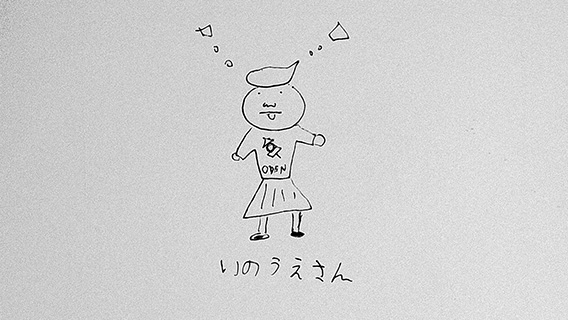 ODEN
いのうえさん